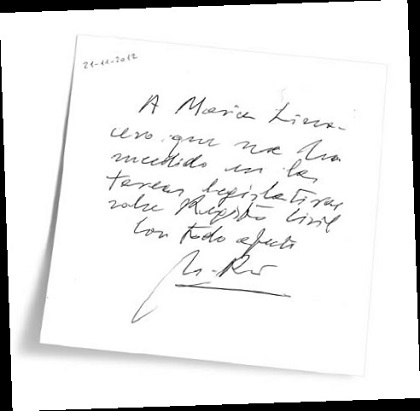 21-11-2012
A María Linacero que me ha
sucedido en las
tareas legislativas
sobre Registro Civil
Con todo afecto